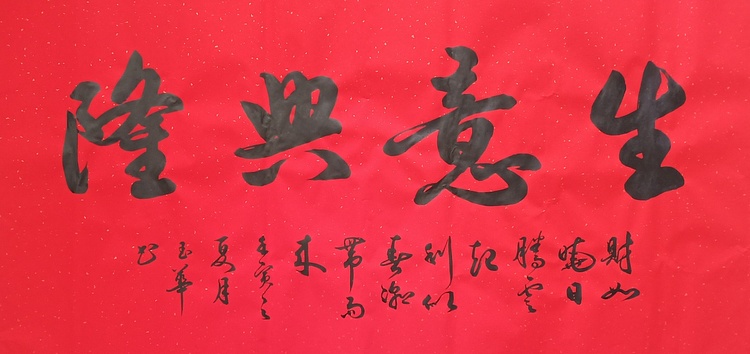 生意興隆
財如
曉日
騰雲
起
利似
春潮
帶雨
來
壬寅之
夏月
玉華
书